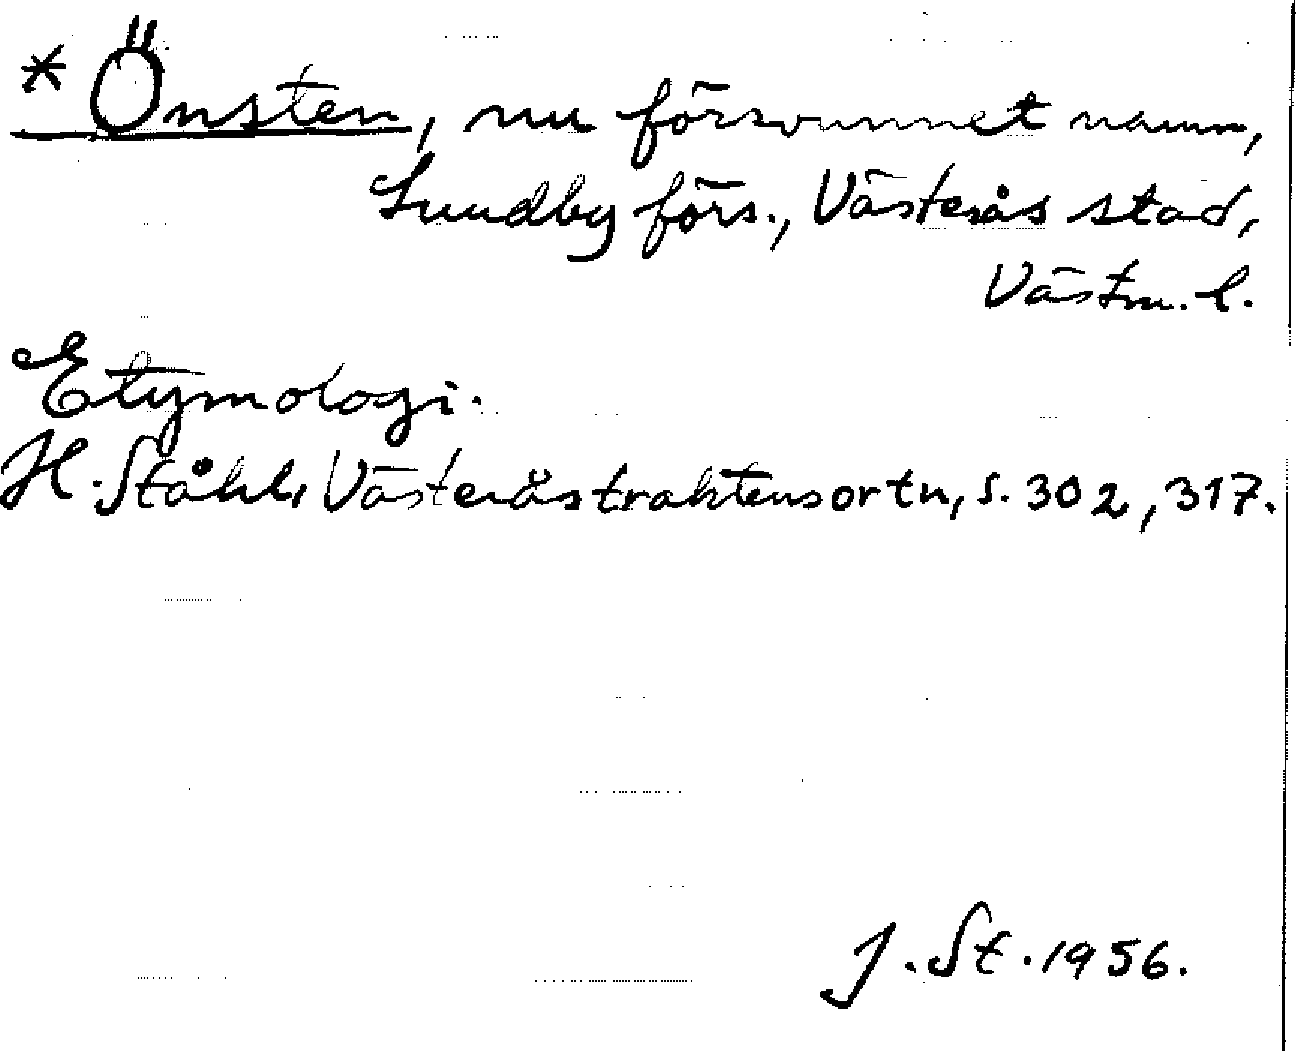 * Önsten, nu försvunnet namn,
Lundby förs., Västerås stad,
Västm. l.
Etymologi.
H. Ståhl, Västeråstraktens ortn, s. 302, 317.
J. St. 1956.